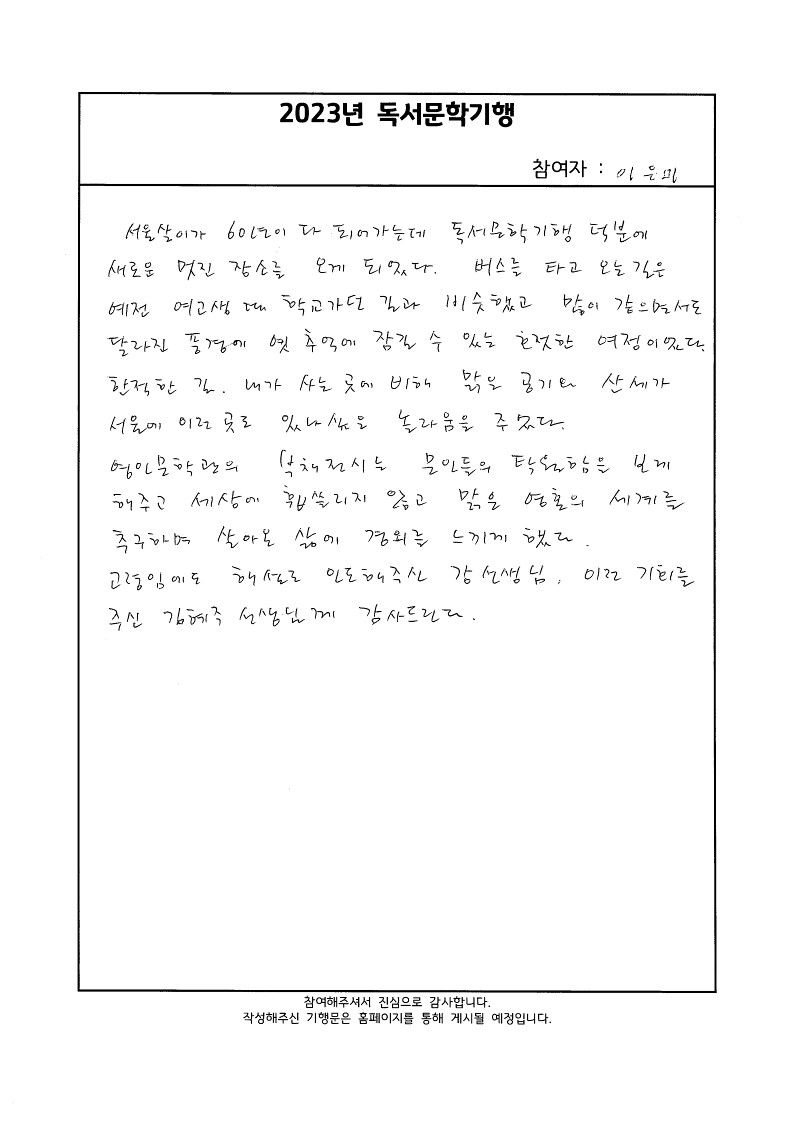 2023년 독서문학기행
참여자 : 이은미
서울살이가 60년이 다 되어가는데 독서문학기행 덕분에
새로운 멋진 장소를 오게 되었다. 버스를 타고 오는 길은
예전 여고생 때 학교가던 길과 비슷했고 많이 같으면서도
달라진 풍경에 옛 추억에 잠길 수 있는 호젓한 여정이었다.
한적한 길. 내가 사는 곳에 비해 맑은 공기와 산세가
서울에 이런 곳도 있나 싶은 놀라움을 주었다.
영인문학관의 부채전시는 문인들의 탁월함을 보게
해주고 세상에 휩쓸리지 않고 맑은 영혼의 세계를
추구하며 살아온 삶에 경외를 느끼게 했다.
고령임에도 해설로 인도해주신 강 선생님, 이런 기회를
주신 김혜주 선생님께 감사드린다.
참여해주셔서 진심으로 감사합니다.
작성해주신 기행문은 홈페이지를 통해 게시될 예정입니다.